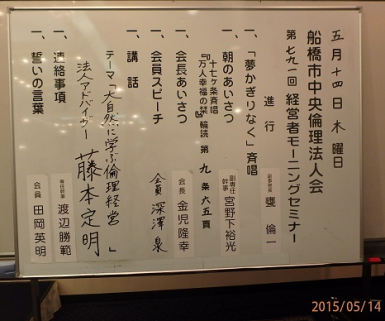 五月十四日 木曜日
船橋市中央倫理法人会
第七九一回 経営者モーニングセミナー
進行 甕 倫一
一、「夢かぎりなく」斉唱
一、朝のあいさつ 副専任幹事 宮野下裕光
十七ヶ条斉唱
『万人幸福の栞』輪読 第九条六五頁
一、会長あいさつ 会長 金児隆幸
一、会員スピーチ 会員 深澤泉
一、講話
テーマ「大自然に学ぶ倫理経営」
法人アドバイザー 藤本定明
一、連絡事項 渡辺勝範
一、誓いの言葉 会員 田岡英明
2015/05/14